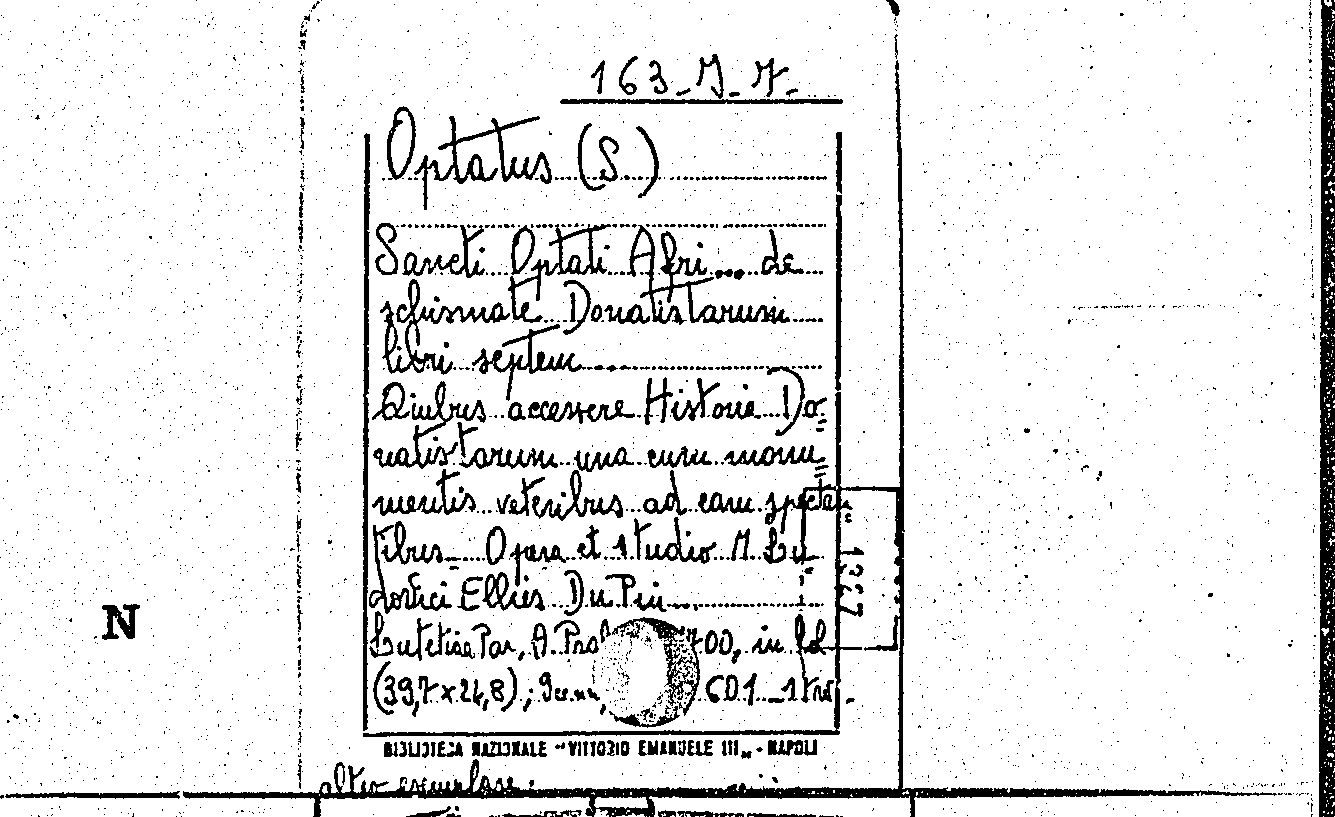 163-J-7-
Optatus (S.)
Sancti Optati Afri... de
schismate Donatistarum
libri septem...
Quibus accessere Historia Do=
natistarum una cum monu=
mentis veteribus ad eam spectan=
tibus- Opera et studio M Lu=
dovici Ellies Du Pin...
Lutetiae Par, A. 700, in
(39,7 x 24,8); 601
BIBLIOTECA NAZIONALE "VITTORIO EMANUELE III" - NAPOLI
altro esemplare:
N